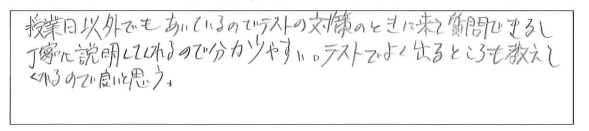 授業日以外でもあいているのでテストの対策のときに来て質問できるし
丁寧に説明してくれるので分かりやすい。テストでよく出るところも教えて
くれるので良いと思う。